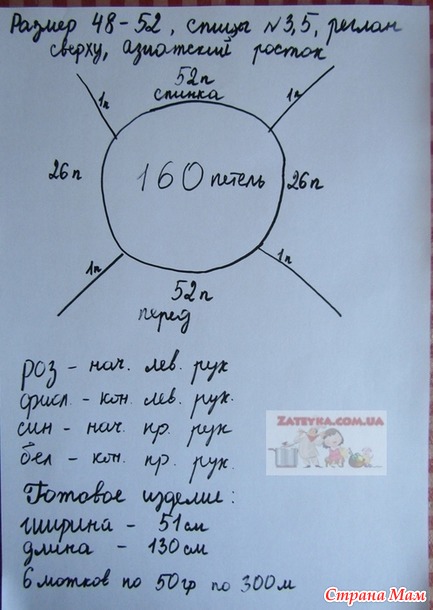 Размер 48-52, спицы №3,5, реглан
сверху, азиатский росток
52п
спинка
1п
1п
26п
160 петель
26п
1п
1п
52п
перед
роз - нач. лев. рук
фисл. - кон. лев. рук.
син - нач. пр. рук
бел - кон. пр. рук.
ZATEYKA.COM.UA
Готовое изделие:
ширина - 51см
длина - 130см
6 мотков по 50гр по 300м
Страна Мам